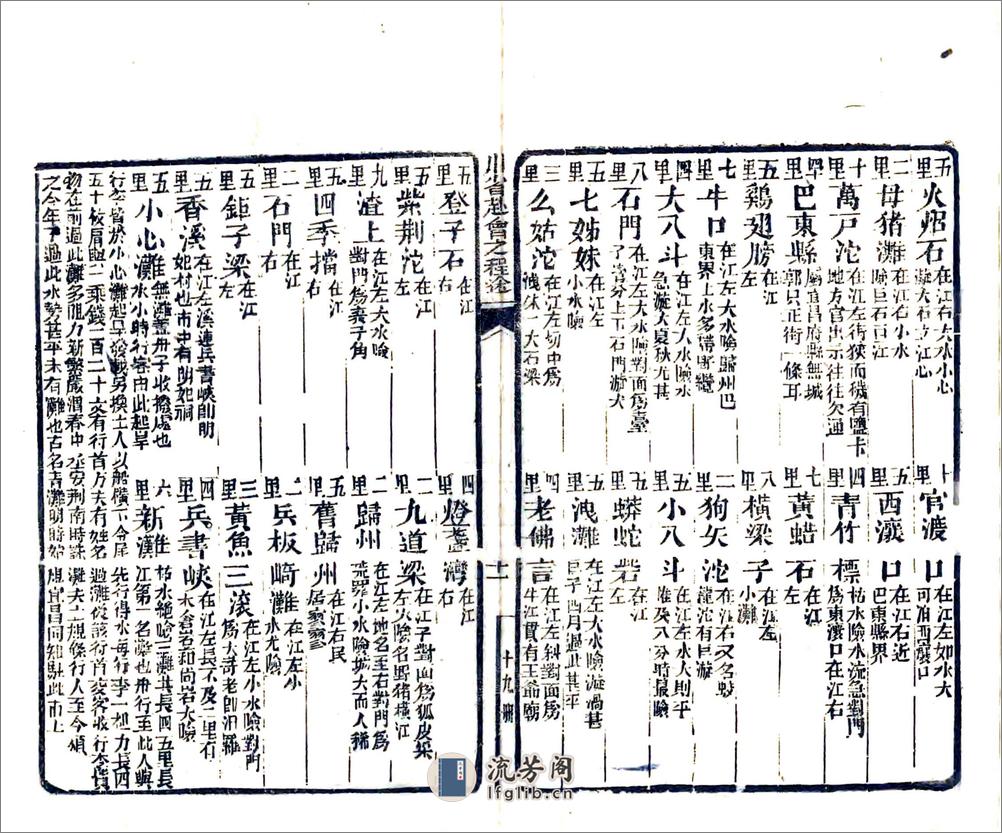 五里 火焰石 在江右大水小心漩大石立江心
十里 官渡口 在江左如水大可泊西瀼口
二里 母猪灘 在江右小水險巨石亘江
五里 西瀼口 在江右近巴東縣界
十里 萬戸沱 在江左街狹而穢有鹽卡地方官出示往往欠通
四里 青竹標 枯水險水流急對門為東瀼口在江右
四里 巴東縣 屬宜昌府縣無城郭只正街一條耳
七里 黃蜡石 在江左
五里 鷄翅膀 在江左
八里 橫梁子 在江左小灘
七里 牛口 在江左大水險歸州巴東界上水多帶断纜
二里 狗矢沱 在江右又名蛟龍沱有巨漩
四里 大八斗 在江左大水險水急漩大夏秋尤甚
五里 小八斗 在江左水大則平八分時最險
八里 石門 在江左大水險對面爲臺分上下石門漩大
五里 蟒蛇岩 在江左
五里 七姊妹 在江左小水險
五里 洩灘 在江左大水險漩渦甚巨四月過此甚平
三里 么姑沱 在江左切中爲一大石梁
三里 老佛言 在江左斜對面爲有王爺廟
川省赴會之程途
十一
十九册
五里 登子石 在江右
四里 燈盞灣 在江右
五里 紫荆沱 在江左
二里 九道梁 在江子對面爲狐皮梁左大險名野猪橫江
九里 渣上 在江左大水險對門爲乘子角
二里 歸州 在江左地名至右對門爲荒郡小水險城大而人稀
五里 四季擋 在江右
五里 舊歸州 在江右民居寥寥
二里 石門 在江右
二里 兵板崎灘 在江左小水尤險
五里 鉅子梁 在江左
三里 黃魚三滾 在江左小水險對門爲大
五里 香溪 在江左溪連兵書峽即明妃村也市中有明妃祠
四里 兵書峽 在江左長不及二里有
五里 小心灘 無灘舊舟子收撥處也水小時行客由此起旱
六里 新灘 枯水絶險三灘其長四五里長江第一名灘也舟行至此人與
行李皆於小心灘起旱撥載另換土人以船橫下今是
先行得水每行李一担力長四
五十
過灘後該行首交客收行李貨
物在前過此灘多能力新繁嚴渭春中丞安荆南時誅
灘夫立規條行人至今頌
之今年予過此水勢甚平未有灘也古名青灘明時始
規宜昌同知駐此市上
流芳阁
lfglib.cn